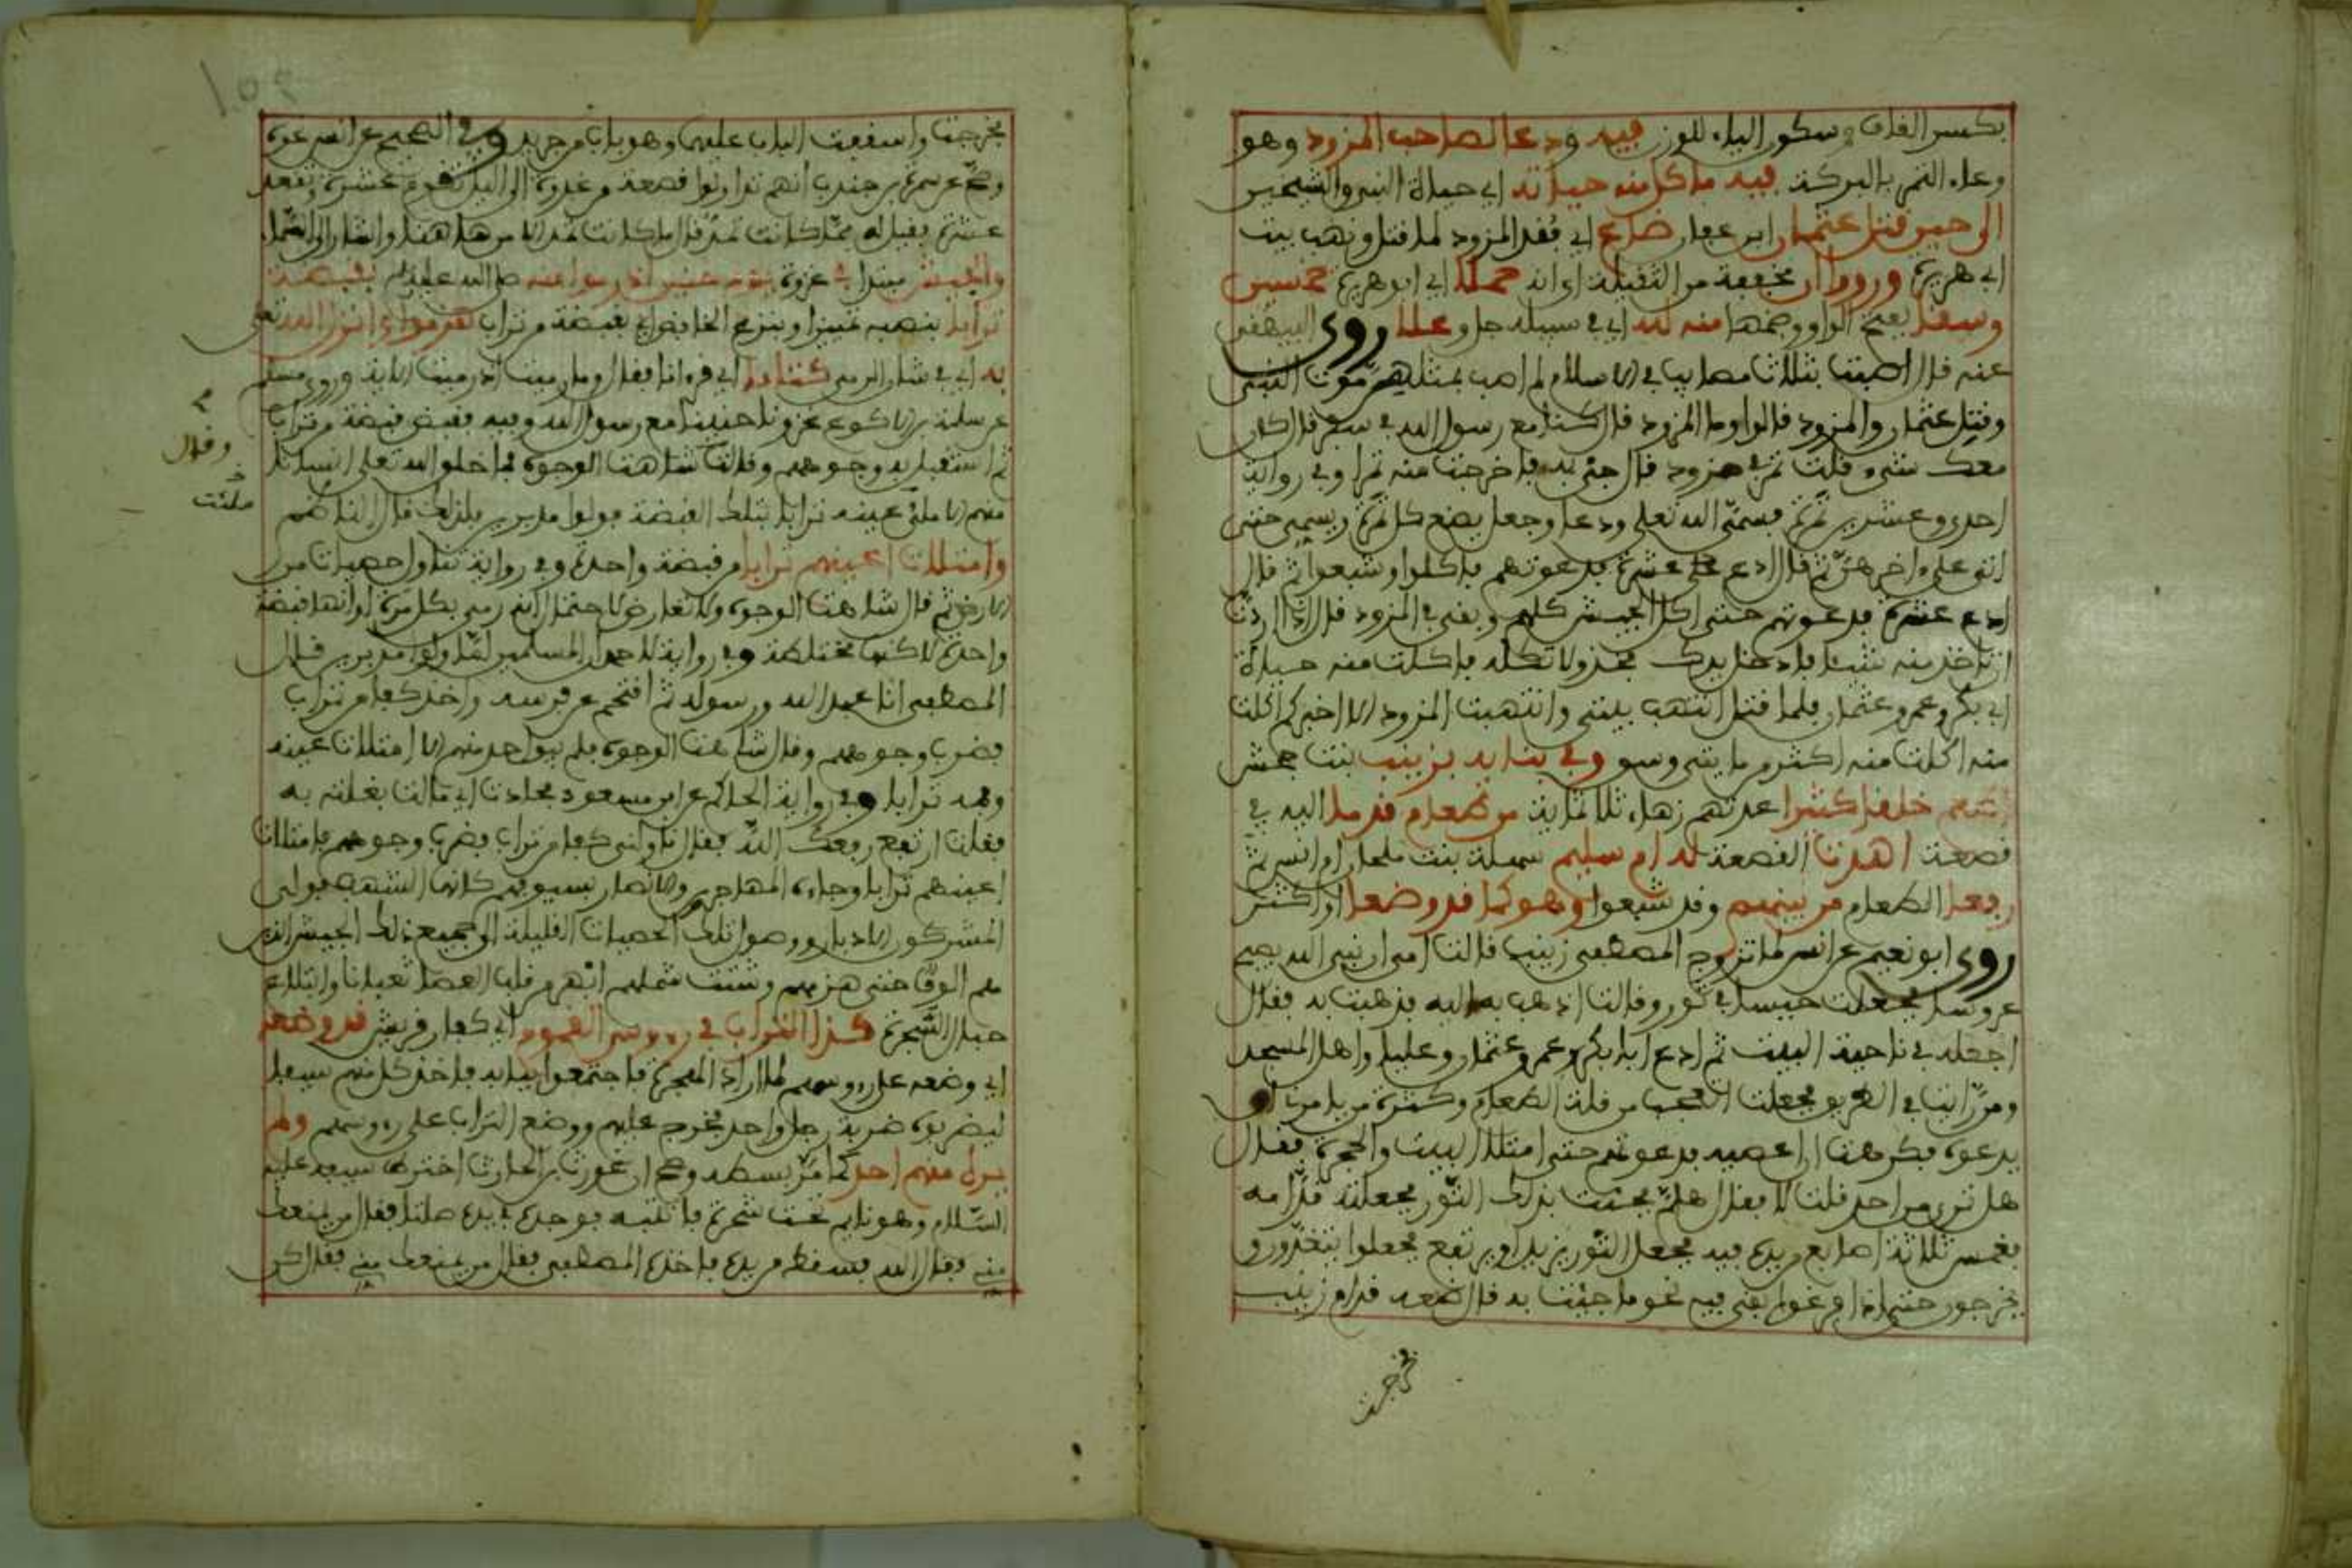 بكسر القاف وسكون الياء للوزن فيه ودعا لصاحب المزود وهو
وعاء التمر بالبركة فيه فاكل منه حياته اي حياة النبي والشيخين
الى حين قتل عثمان ابن عفان ضاع اي فقد المزود لما قتل ونهب بيت
ابي هريرة ورووا ان مخففة من الثقيلة اي انه حملا اي ابو هريرة خمسين
وسقا بفتح الواو وضمها منه لله اي في سبيله جل وعلا روى البيهقي
عنه قال اصبت بثلاث مصايب في الاسلام لم اصب بمثلهن موت النبي
وقتل عثمان والمزود قالوا وما المزود قال كنا مع رسول الله في سفر قال كان
معك شيء قلت تمر في مزود قال جئ به فاخرجت منه تمرا وفي رواية
احدى وعشرين تمرة فسمى الله تعلى ودعا وجعل يضع كل تمرة ويسمي حتى
اتى على اخرهن ثم قال ادع عشرة فدعوتهم فاكلوا وشبعوا ثم قال
ادع عشرة فدعوتهم حتى اكل الجيش كلهم وبقي في المزود قال اذا اردت
ان تاخذ منه شيئا فادخل يدك فخذ ولا تكله فاكلت منه حياة
ابي بكر وعمر وعثمان فلما قتل انتهب بيتي وانتهبت المزود الا اخبركم اكلت
منه اكلت منه اكثر من مايتي وسق وفي بنايه بزينب بنت جحش
اشبع خلقا كثيرا عدتهم زهاء ثلاثماية من طعام قدما اليه في
قصعة اهدت القصعة له ام سليم سهلة بنت ملحان ام انس ثم
رفع الطعام من بينهم وقد شبعوا وهو كما قد وضعا او اكثر
روى ابو نعيم عن انس لما تزوج المصطفى زينب قالت امي ان نبي الله يصبح
عروسا فجعلت حيسا في تور وقالت اذهب به اليه فذهبت به فقال
اجعله في ناحية البيت ثم ادع ابا بكر وعمر وعثمان وعليا واهل المسجد
ومن رايت في الطريق فجعلت اتعجب من قلة الطعام وكثرة من يامرني ان
يدعوه فكرهت ان اعصيه فدعوتهم حتى امتلا البيت والحجرة فقال
هل ترى من احد قلت لا فقال هلم فجئت بذلك التور فجعلته قدامه
فغمس ثلاثة اصابع من يده فيه فجعل التور يزيد ويرتفع فجعلوا يتغدون و
يخرجون حتى اذا فرغوا بقي فيه نحو ما جئت به قال ضعه قدام زينب
فخرجت
فخرجت واسفقت الباب عليهم وهو باب من جريد وفي الصحيح عن انس نحوه
وصح عن سمرة بن جندب انهم تداولوا قصعة من غدوة الى الليل تقوم عشرة وتقعد
عشرة فقيل له مما كانت تمد قال ما كانت تمد الا من هاهنا واشار الى السماء
والجيش مبتدا في غزوة يوم حنين اذ رموا منه صلى الله عليه بقبضة
ترابا بنصبه تمييزا وبنزع الخافض اي بقبضة من تراب هزموا وانزل الله تعلى
به اي في شان الرمي كتابا اي قرءانا فقال وما رميت اذ رميت الاية وروى مسلم
عن سلمة بن الاكوع غزونا حنينا مع رسول الله وفيه فقبض قبضة من تراب
ثم استقبل به وجوههم وقال شاهت الوجوه فما خلق الله تعلى انسانا
منهم الا ملئ عينه ترابا بتلك القبضة فولوا مدبرين
وامتلات اعينهم ترابا من قبضة واحدة وفي رواية تناول حصيات من
الارض ثم قال شاهت الوجوه ولا تعارض لاحتمال انه رمى بكل مرة او انها قبضة
واحدة لاكنها مختلطة وفي رواية لاحمد ان المسلمين لما ولوا مدبرين قال
المصطفى انا عبد الله ورسوله ثم اقتحم عن فرسه واخذ كفا من تراب
فضرب وجوههم وقال شاهت الوجوه فلم يبق احد منهم الا امتلات عينه
وفمه ترابا وفي رواية الحاكم عن ابن مسعود فحادت اي مالت بغلته به
فقلت ارتفع رفعك الله فقال ناولني كفا من تراب فضرب وجوههم فامتلات
اعينهم ترابا وجاء المهاجرون والانصار بسيوفهم كانها الشهب فولى
المشركون الادبار ووصول تلك الحصيات القليلة الى جميع ذلك الجيش الذين
هم الوف حتى هزمهم وشتت شملهم ابهر من قلب العصا ثعبانا وابتلاع
حبال السحرة كذا التراب في رءوس القوم اي كفار قريش قد وضعه
اي وضعه على رءوسهم لما اراد الهجرة فاجتمعوا ببابه فاخذ كل منهم سيفا
ليضربوه ضربة رجل واحد فخرج عليهم ووضع التراب على رءوسهم ولم
يره منهم احد كما مر بسطه وصح ان غورث بن الحارث اخترط سيفه عليه
السلام وهو نايم تحت شجرة فانتبه فوجده في يده صلتا فقال من يمنعك
مني فقال الله فسقط من يده فاخذه المصطفى فقال من يمنعك مني فقال كن
وقال
ملئت